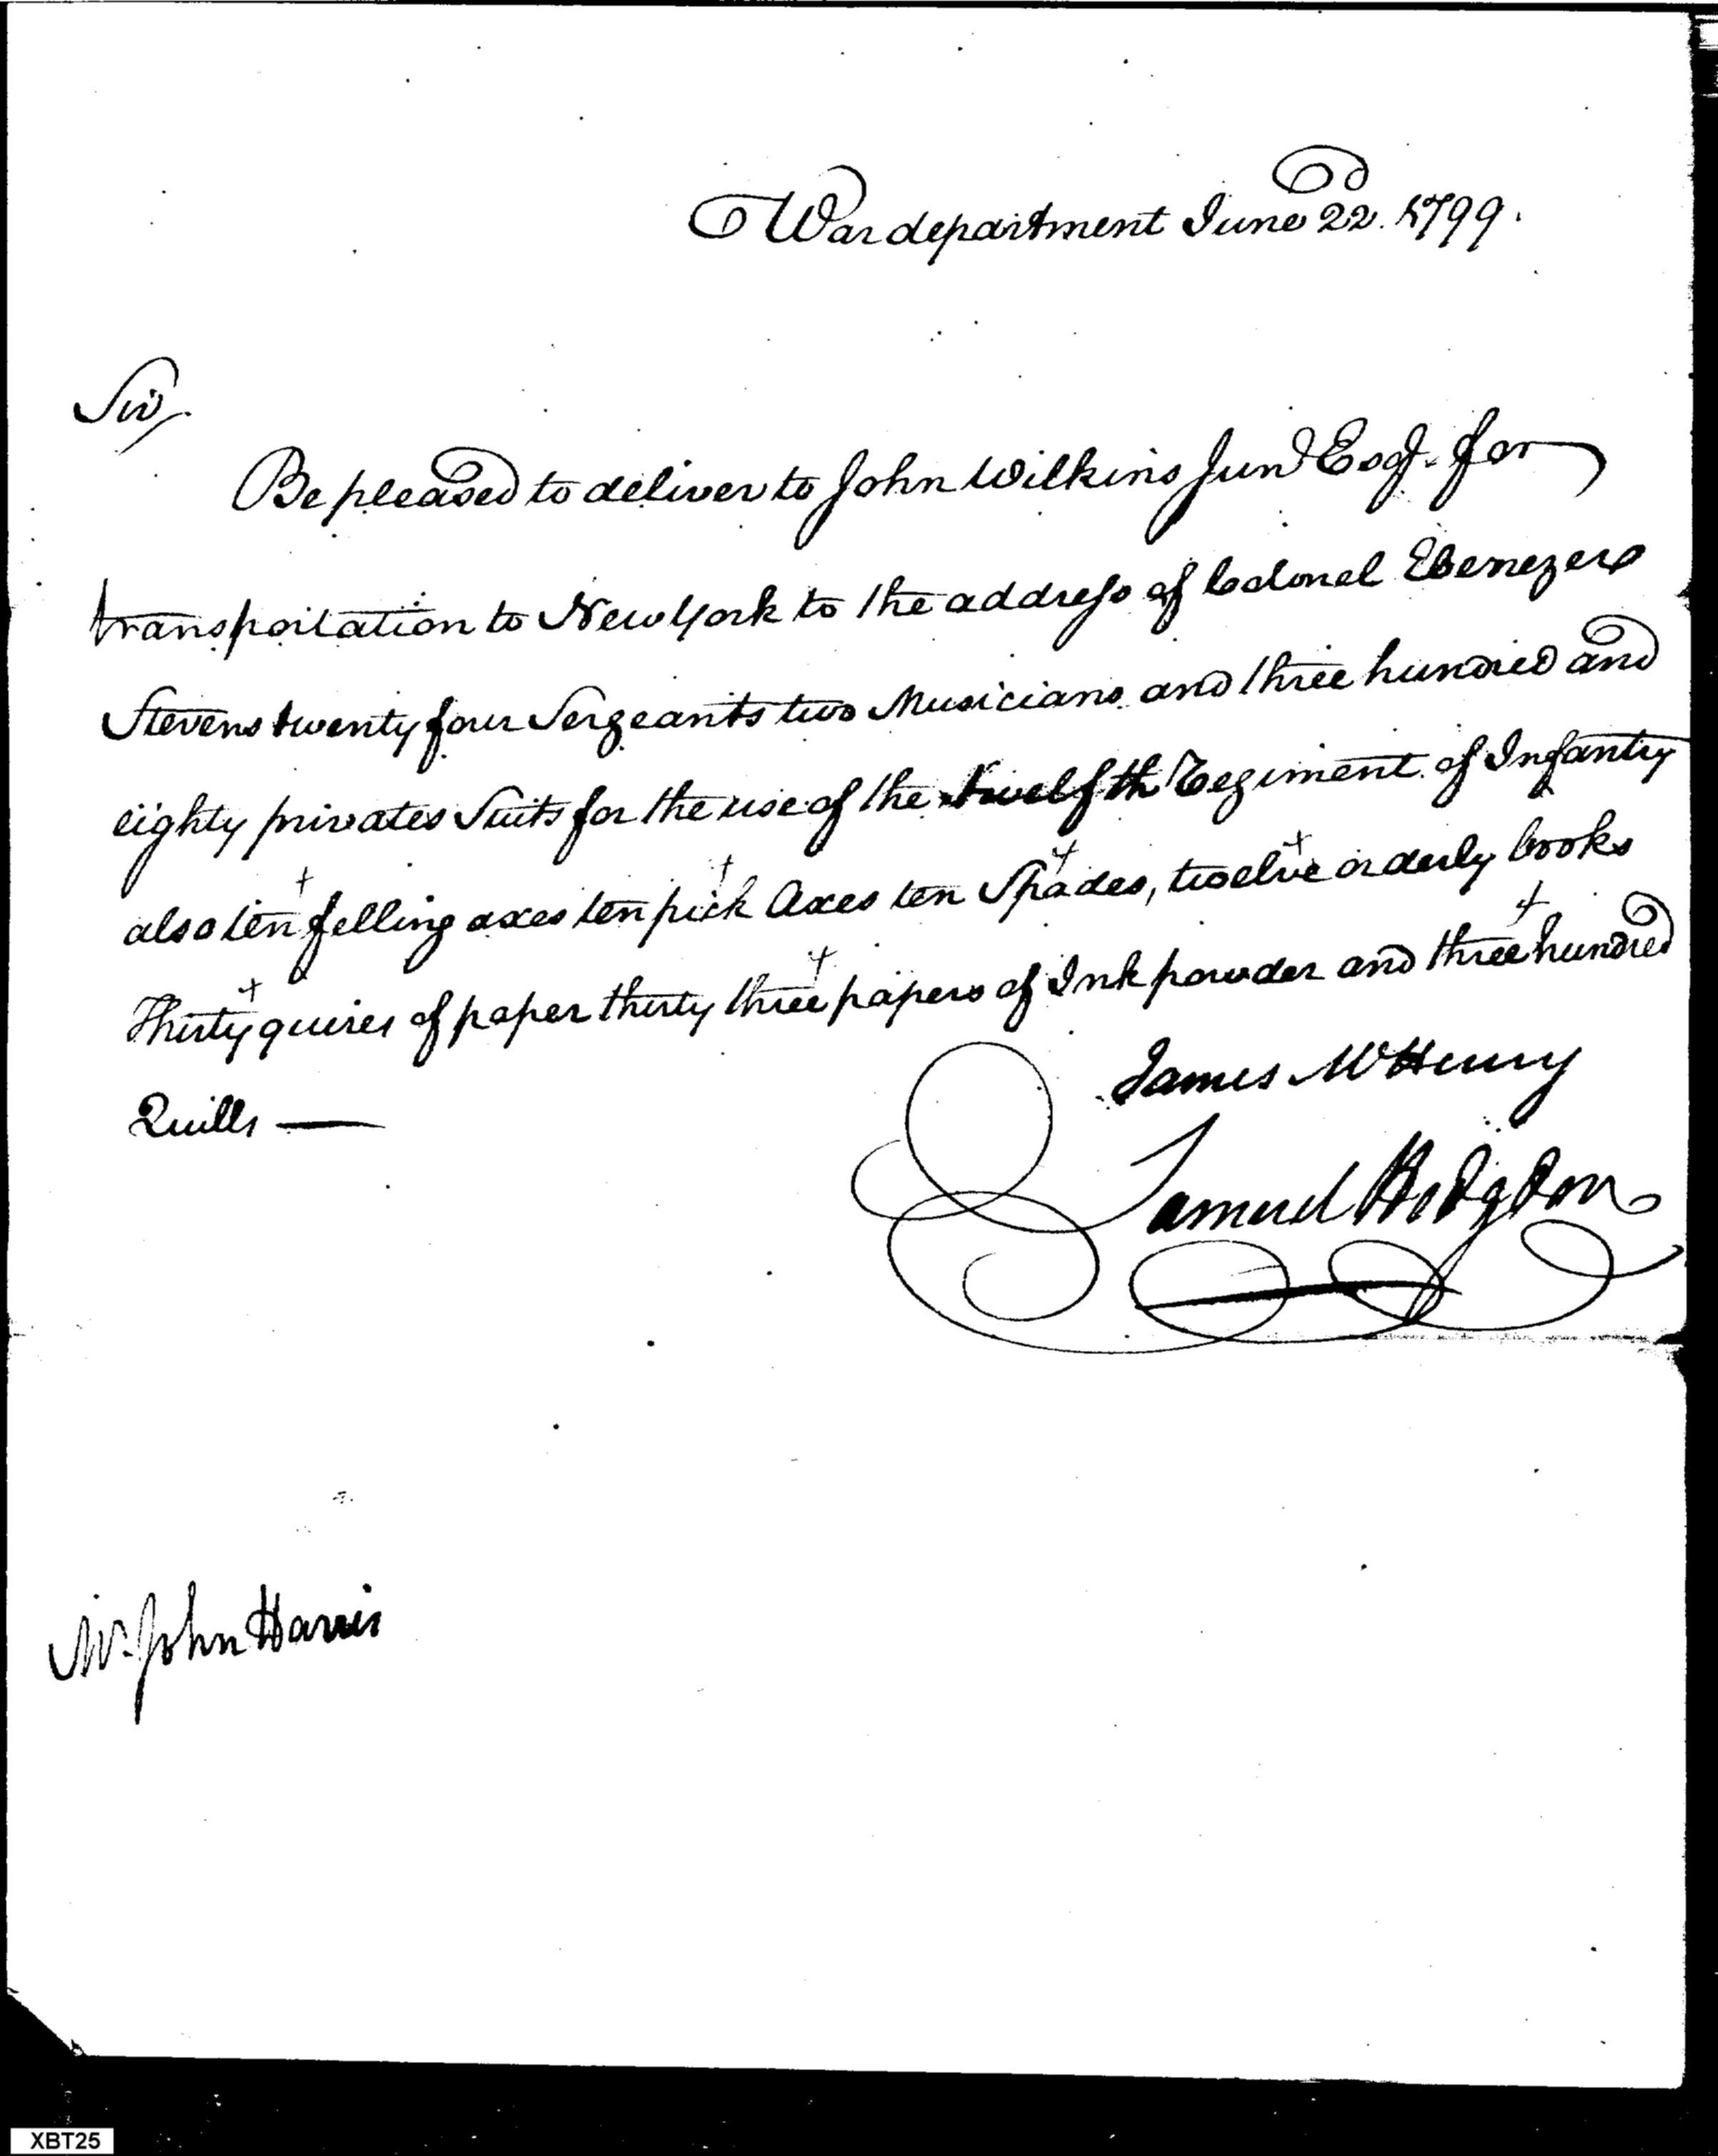 War department June 22d. 1799.
Sir,
Be pleased to deliver to John Wilkins Junr Esqr. for
transportation to New York to the address of Colonel Ebenezer
Stevens twenty four Sergeants two Musicians and three hundred and
eighty privates Suits for the use of the twelfth Regiment of Infantry
also ten felling axes ten pick Axes ten Spades, twelve orderly books
Thirty quires of paper thirty three papers of Ink powder and three hundred
Quills —
James McHenry
Samuel Hodgdon
Mr. John Harris
XBT25